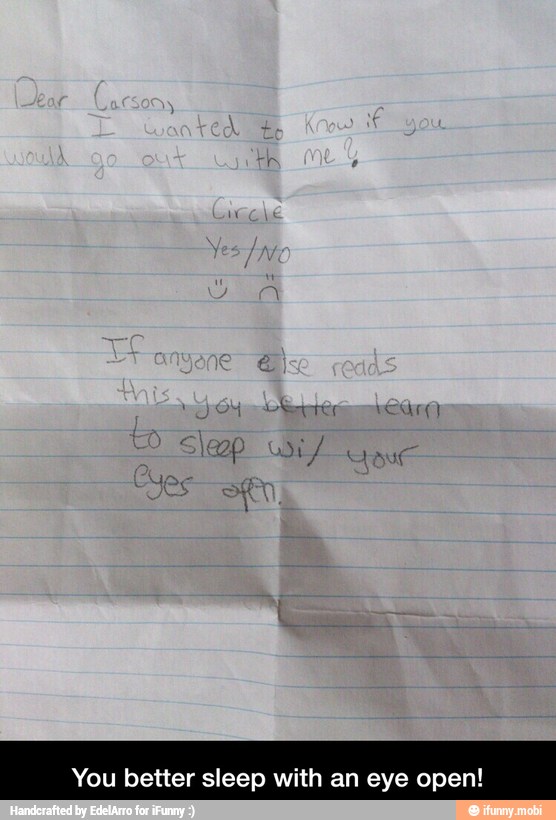 Dear Carson,
I wanted to know if you
would go out with me?
Circle
Yes/NO
If anyone else reads
this, you better learn
to sleep wi/ your
eyes open.
You better sleep with an eye open!
Handcrafted by EdelArro for iFunny :)
ifunny.mobi